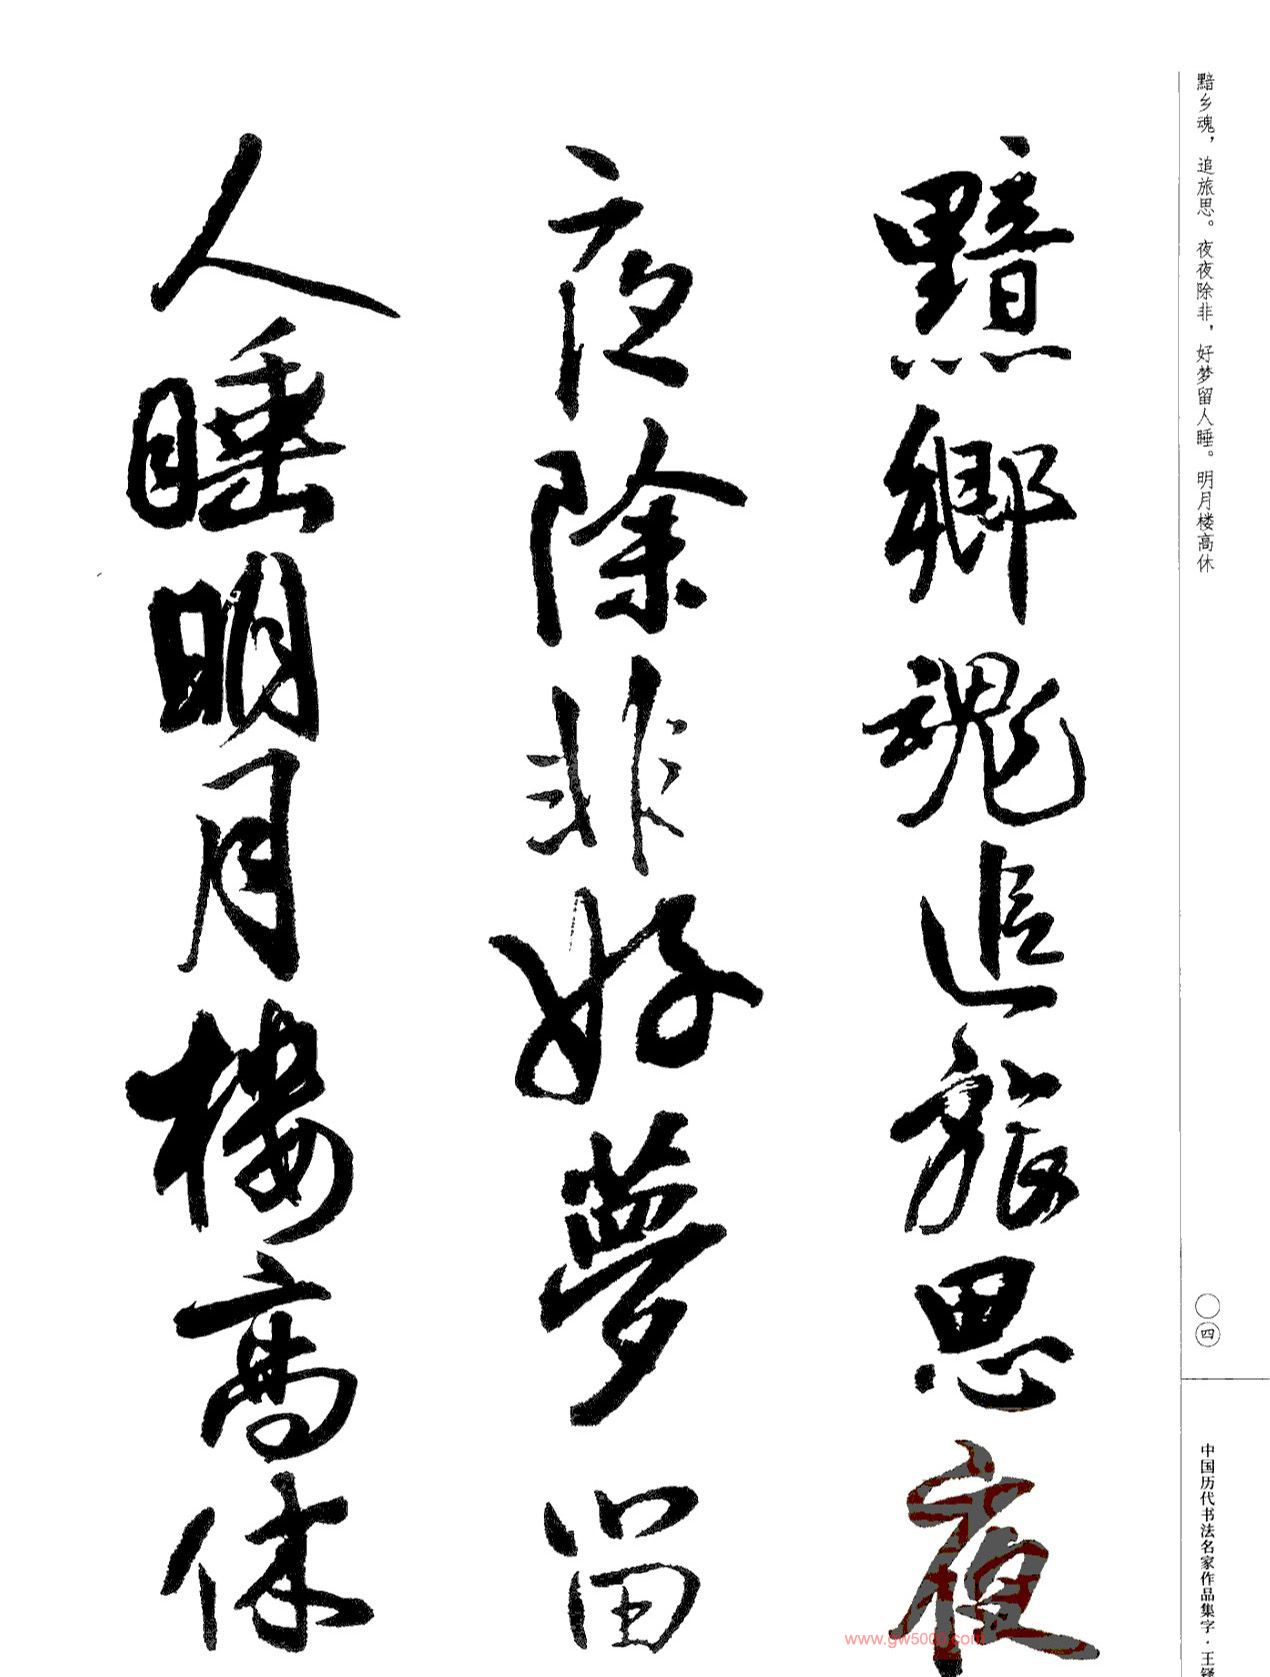 黯乡魂，追旅思。夜夜除非，好梦留人睡。明月楼高休
〇四
中国历代书法名家作品集字·王铎
黯鄉魂追旅思夜
夜除非好夢留
人睡明月樓高休
www.gw5000.com